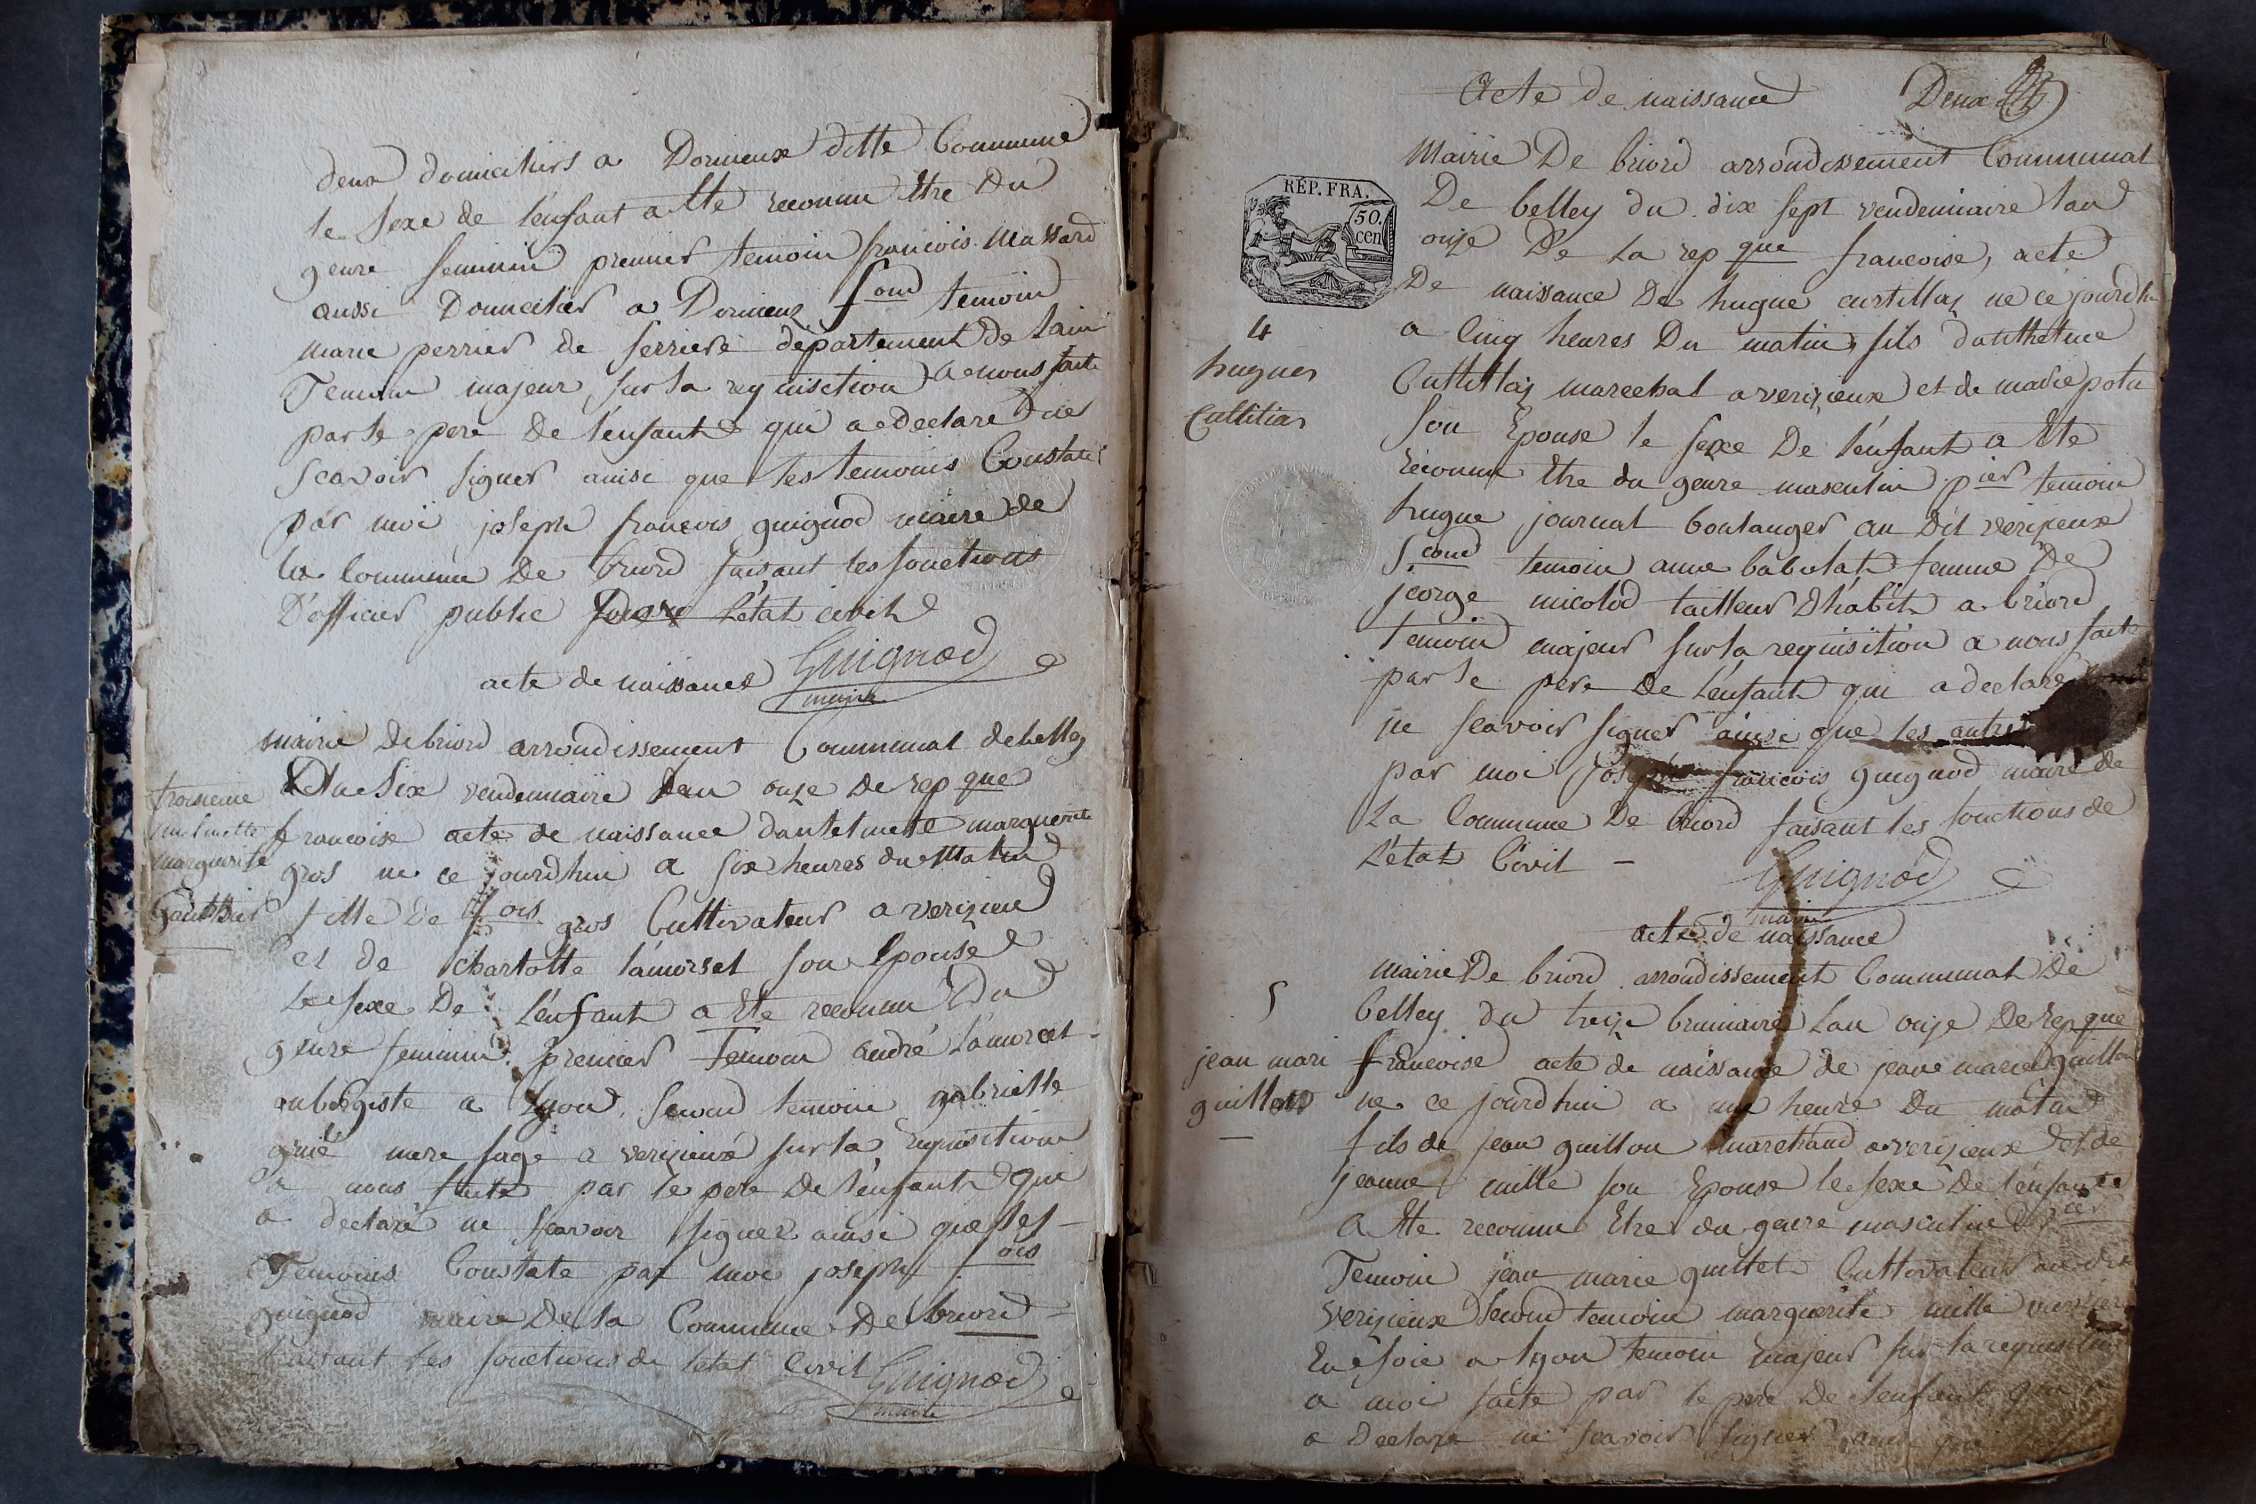 deux domiciliers a Dornieux ditte Commune
le Sexe de l'enfant a ette reconnu Etre Du
genre feminin premier temoin francois Massard
aussi Domicilier a Dornieux sond temoin
marie perrier de serriere département de lain
Temoin majeur sur la requisition a nous faite
par le pere De l'enfant qui a declaré ne
scavoir signer ainsi que les temoins Constate
par moi joseph francois guignod maire de
la Commune De briord faisant les fonctions
D'officier public L'état civil
acte de naissance Guignod
maire
mairie de briord arrondissement Communal de belley
Du Six vendemiaire l'an onze De rep que
troisieme
francoise acte de naissance dantelmette marguerite
antelmette
marguerite
gros ne ce jourdhui a six heures du Matin
fille de fois gros Cultivateur a verizieu
et de charlotte lamorset son Epouse
Le sexe De L'enfant a Ete reconnu Du
genre feminin premier Temoin andré Lamorcet
aubergiste a Lyon second temoin gabrielle
mere sage a verizieux sur la requisition
a nous faite par le pere De l'enfant qui
a declaré ne scavoir signer ainsi que les
Temoins Constate par moi joseph fois
guignod maire De la Commune De briord
faisant les fonctions de letat Civil Guignod
maire
Acte de naissance Deux
Mairie De briord arrondissement Communal
De belley du dix sept vendemiaire lan
RÉP. FRA.
50
cen
onze De La rep que francoise, acte
De naissance De hugue curtillaz ne ce jourdhui
4
a Cinq heures Du matin fils
hugues
Cuttillaz marechal a verizieux et de marie
son Epouse le sexe De l'enfant a Ete
reconnu Etre du genre masculin pier temoin
hugue journal boulanger au Dit verizieux
scond temoin anne babolat femme De
jeorge micolod tailleur D'habit a briord
temoin majeur sur la requisition a nous faite
par le pere De L'enfant qui a declaré
ne scavoir signer ainsi que les
par moi joseph francois guignod maire de
La Commune De briord faisant les fonctions de
L'état Civil
Guignod
maire
acte de naissance
mairie De briord arrondissement Communal De
5
belley du treize brumaire Lan onze De rep que
jean mari
francoise acte de naissance de jean marie guillon
guillon
ne ce jourdhui a une heure Du matin
fils de jean guillon marchand a verizieux et de
jeanne mille son Epouse le sexe De l'enfant
a Ette reconnu Etre du genre masculin pier
Temoin jean marie guillet Cultivateur au dit
verizieux second temoin marguerite mille
En soie a lyon temoin majeur sur la requisition
a moi faite par le pere De l'enfant qui
a Declaré ne scavoir signer ainsi que